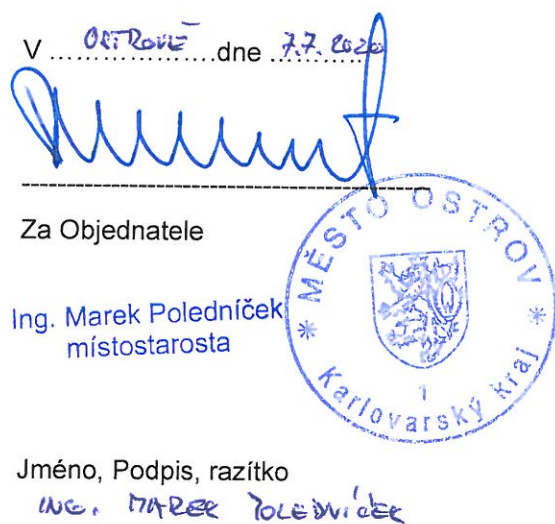 V OSTROVĚ dne 7.7. 2020
Za Objednatele
MĚSTO OSTROV
Ing. Marek Poledníček
místostarosta
1
* Karlovarský kraj *
Jméno, Podpis, razítko
ING. MAREK POLEDNÍČEK